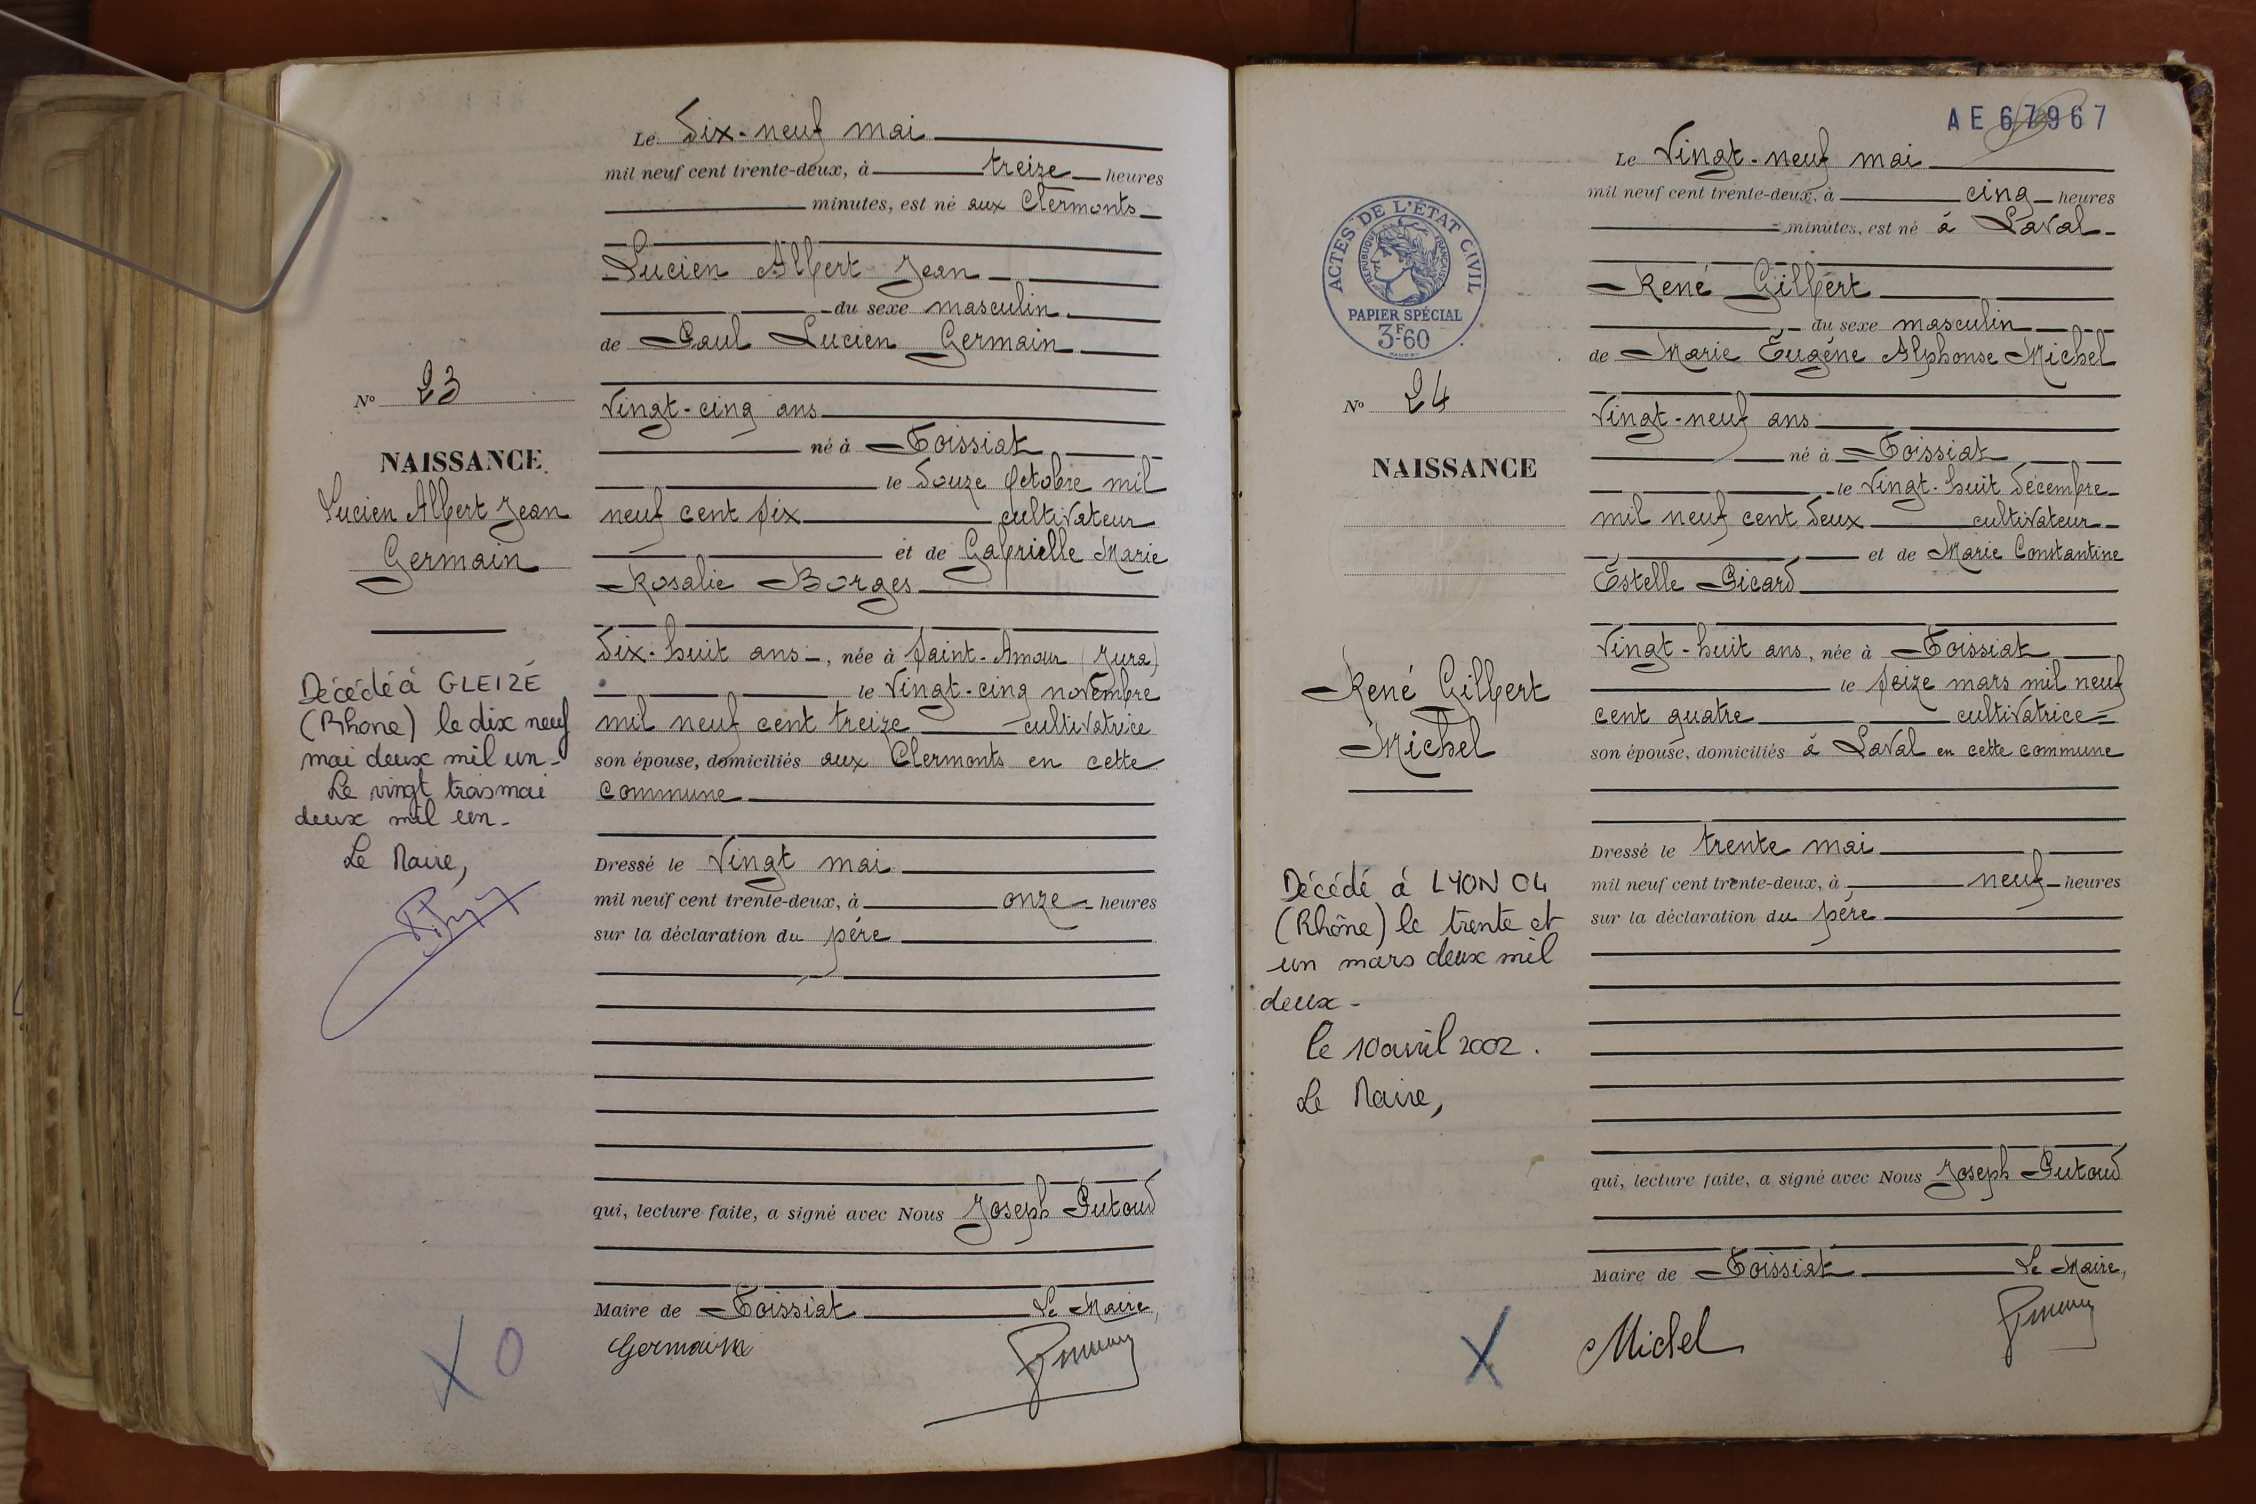 Le Dix-neuf mai
mil neuf cent trente-deux, à treize heures
minutes, est né aux Clermonts
Lucien Albert Jean
du sexe masculin
de Paul Lucien Germain
Vingt-cinq ans
né à Foissiat
le Douze Octobre mil
neuf cent six cultivateur
et de Gabrielle Marie
Rosalie Borges
Dix-huit ans, née à Saint-Amour (Jura)
le Vingt-cinq novembre
mil neuf cent treize cultivatrice
son épouse, domiciliés aux Clermonts en cette
commune
Dressé le Vingt mai
mil neuf cent trente-deux, à onze heures
sur la déclaration du père
qui, lecture faite, a signé avec Nous Joseph Putoud
Maire de Foissiat Le Maire,
Germain
No 23
NAISSANCE
Lucien Albert Jean
Germain
Décédé à GLEIZÉ
(Rhone) le dix neuf
mai deux mil un-
Le vingt trois mai
deux mil un-
Le Maire,
X O
AE 67967
Le Vingt-neuf mai
mil neuf cent trente-deux, à cinq heures
minutes, est né à Laval
René Gilbert
du sexe masculin
de Marie Eugène Alphonse Michel
Vingt-neuf ans
né à Foissiat
le Vingt-huit Décembre
mil neuf cent Deux cultivateur
et de Marie Constantine
Estelle Picard
Vingt-huit ans, née à Foissiat
le seize mars mil neuf
cent quatre cultivatrice
son épouse, domiciliés à Laval en cette commune
Dressé le trente mai
mil neuf cent trente-deux, à neuf heures
sur la déclaration du père
qui, lecture faite, a signé avec Nous Joseph Putoud
Maire de Foissiat Le Maire,
Michel
ACTES DE L'ÉTAT CIVIL
RÉPUBLIQUE FRANÇAISE
PAPIER SPÉCIAL
3F60
No 24
NAISSANCE
René Gilbert
Michel
Décédé à LYON 04
(Rhône) le trente et
un mars deux mil
deux-
le 10 avril 2002.
Le Maire,
X